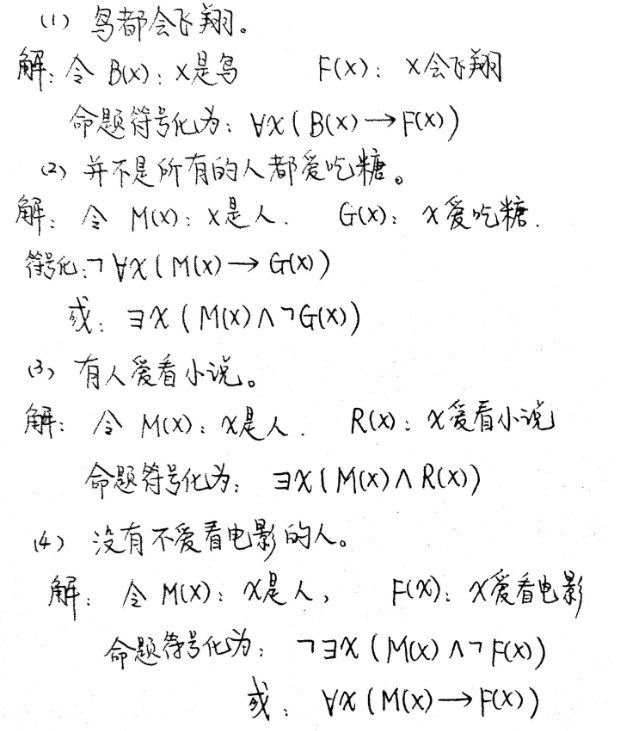 (1) 鸟都会飞翔。
解：令 B(x)：x是鸟　F(x)：x会飞翔
命题符号化为：∀x(B(x)→F(x))
(2) 并不是所有的人都爱吃糖。
解：令 M(x)：x是人. G(x)：x爱吃糖.
符号化：¬∀x(M(x)→G(x))
或：∃x(M(x)∧¬G(x))
(3) 有人爱看小说。
解：令 M(x)：x是人. R(x)：x爱看小说
命题符号化为：∃x(M(x)∧R(x))
(4) 没有不爱看电影的人。
解：令 M(x)：x是人， F(x)：x爱看电影
命题符号化为：¬∃x(M(x)∧¬F(x))
或：∀x(M(x)→F(x))